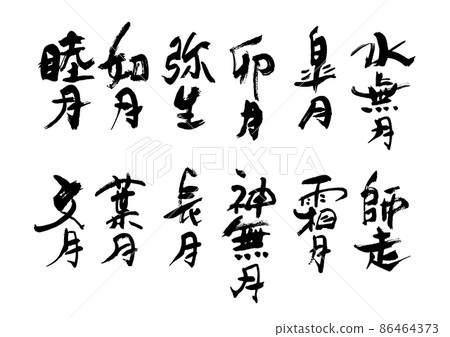 睦月
如月
弥生
卯月
皐月
水無月
文月
葉月
長月
神無月
霜月
師走
PIXTA
86464373